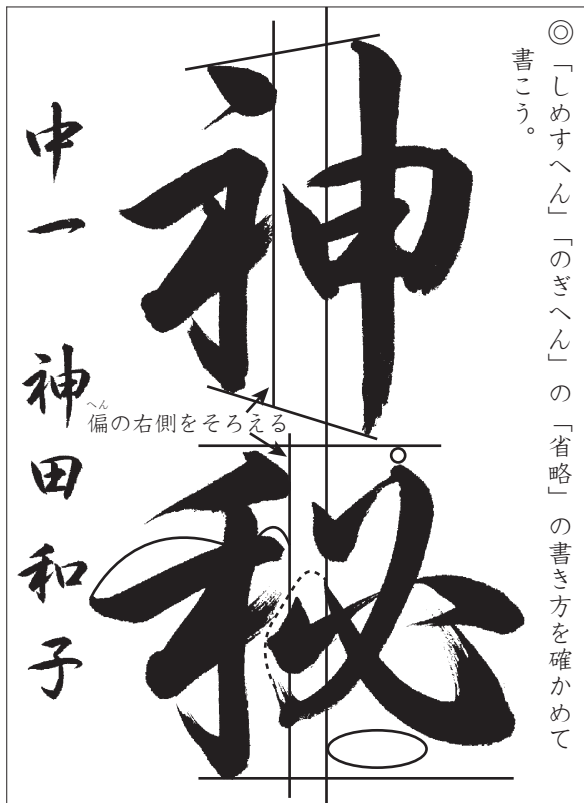 ◎「しめすへん」「のぎへん」の「省略」の書き方を確かめて
書こう。
神秘
へん
偏の右側をそろえる
中一 神田和子